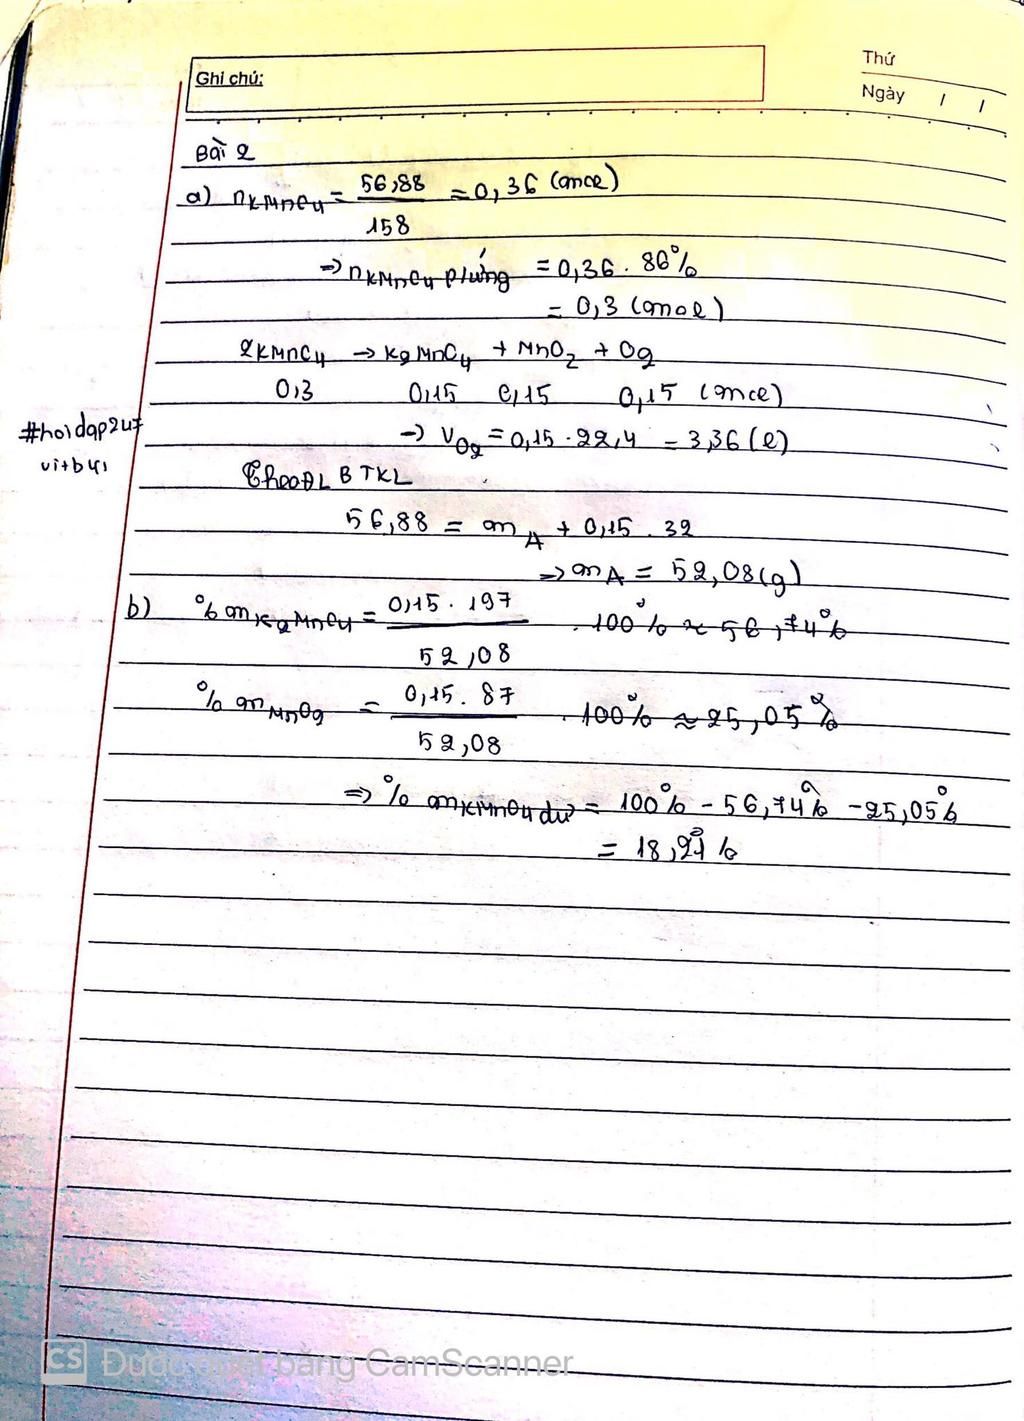 Ghi chú:
Thứ
Ngày / /
Bài 2
a) nKMnO4 = 56,88 / 158 = 0,36 (mol)
=> nKMnO4 p/ứng = 0,36 . 86%
= 0,3 (mol)
2KMnO4 -> K2MnO4 + MnO2 + O2
0,3 0,15 0,15 0,15 (mol)
-> VO2 = 0,15 . 22,4 = 3,36 (l)
#hoidap247
vitb41
Theo ĐL BTKL
56,88 = mA + 0,15 . 32
=> mA = 52,08 (g)
b) % mK2MnO4 = 0,15 . 197 / 52,08 . 100% ≈ 56,74%
% mMnO2 = 0,15 . 87 / 52,08 . 100% ≈ 25,05%
=> % mKMnO4 dư = 100% - 56,74% - 25,05%
= 18,21%
CS Được quét bằng CamScanner